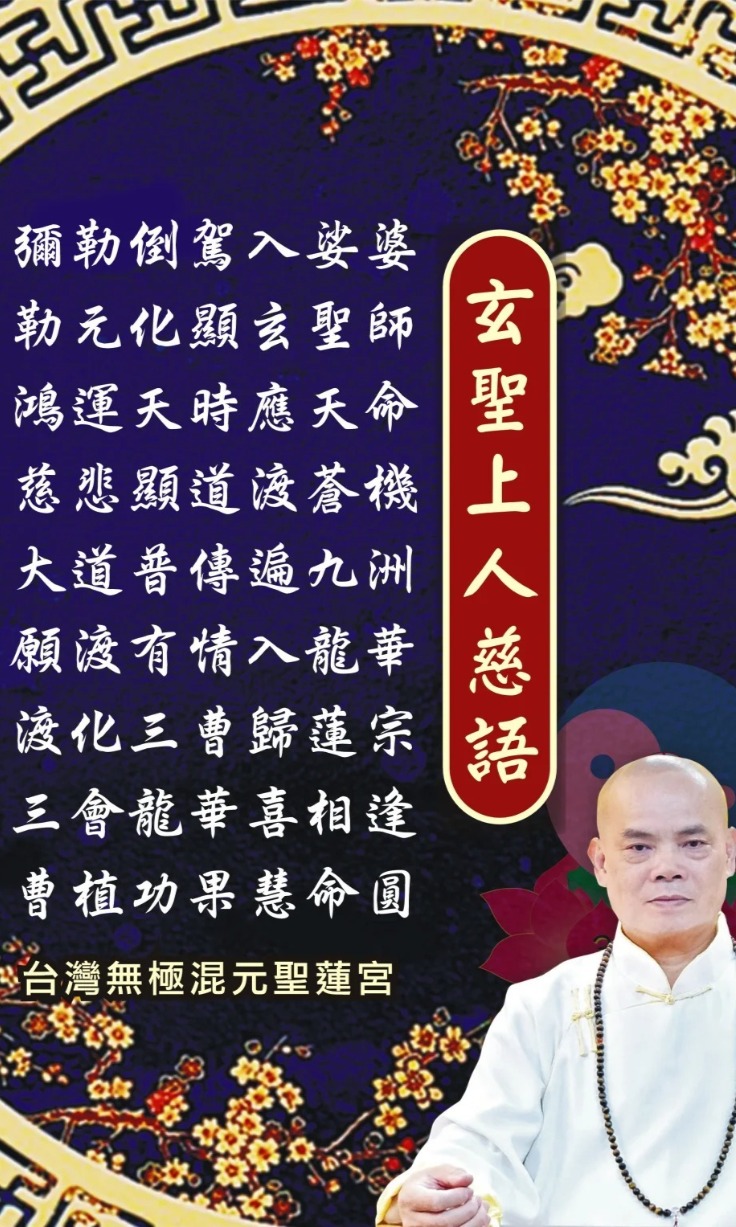 玄聖上人慈語
彌勒倒駕入娑婆
勒元化顯玄聖師
鴻運天時應天命
慈悲顯道渡蒼機
大道普傳遍九洲
願渡有情入龍華
渡化三曹歸蓮宗
三會龍華喜相逢
曹植功果慧命圓
台灣無極混元聖蓮宮